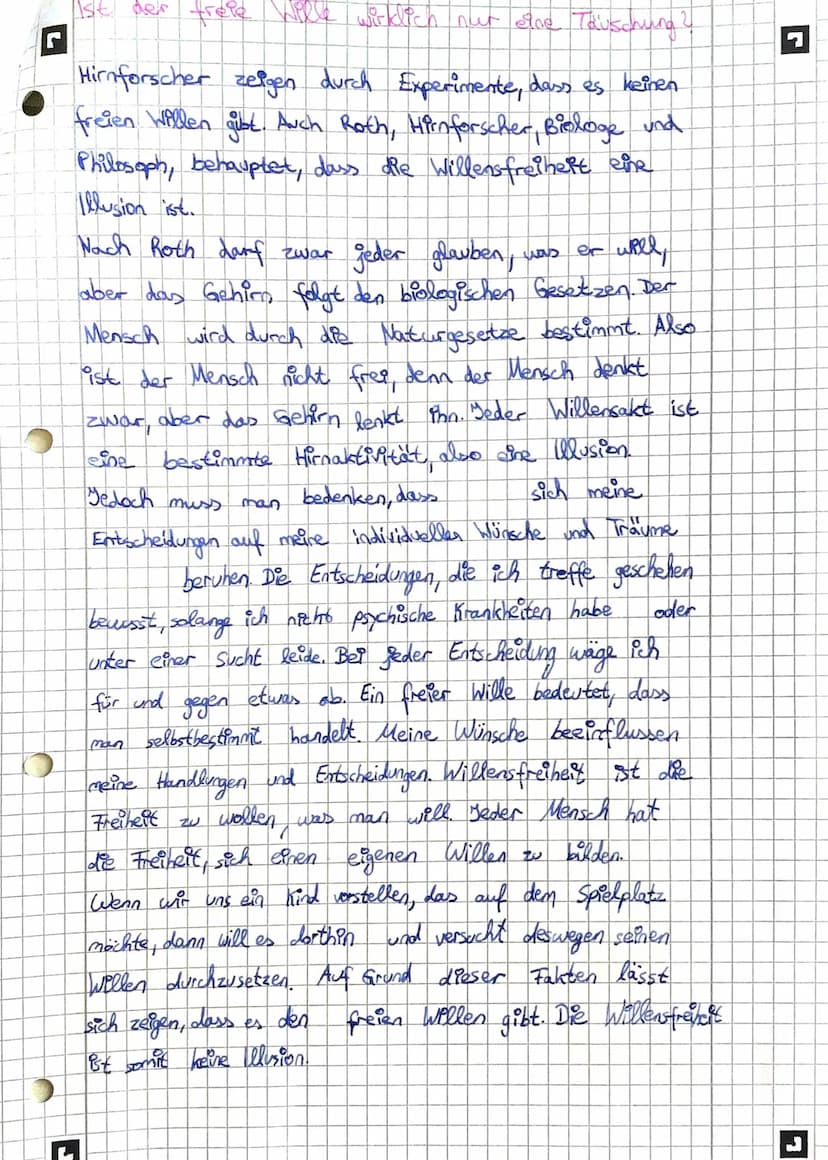 Ist der freie Wille wirklich nur eine Täuschung?
Hirnforscher zeigen durch Experimente, dass es keinen
freien Willen gibt. Auch Roth, Hirnforscher, Biologe und
Philosoph, behauptet, dass die Willensfreiheit eine
Illusion ist.
Nach Roth darf zwar jeder glauben, was er will,
aber das Gehirn folgt den biologischen Gesetzen. Der
Mensch wird durch die Naturgesetze bestimmt. Also
ist der Mensch nicht frei, denn der Mensch denkt
zwar, aber das Gehirn lenkt ihn. Jeder Willensakt ist
eine bestimmte Hirnaktivität, also eine Illusion.
Jedoch muss man bedenken, dass sich meine
Entscheidungen auf meine individuellen Wünsche und Träume
beruhen. Die Entscheidungen, die ich treffe geschehen
bewusst, solange ich nicht psychische Krankheiten habe oder
unter einer Sucht leide. Bei jeder Entscheidung wäge ich
für und gegen etwas ab. Ein freier Wille bedeutet, dass
man selbstbestimmt handelt. Meine Wünsche beeinflussen
meine Handlungen und Entscheidungen. Willensfreiheit ist die
Freiheit zu wollen, was man will. Jeder Mensch hat
die Freiheit, sich einen eigenen Willen zu bilden.
Wenn wir uns ein Kind vorstellen, das auf dem Spielplatz
möchte, dann will es dorthin und versucht deswegen seinen
Willen durchzusetzen. Auf Grund dieser Fakten lässt
sich zeigen, dass es den freien Willen gibt. Die Willensfreiheit
ist somit keine Illusion.